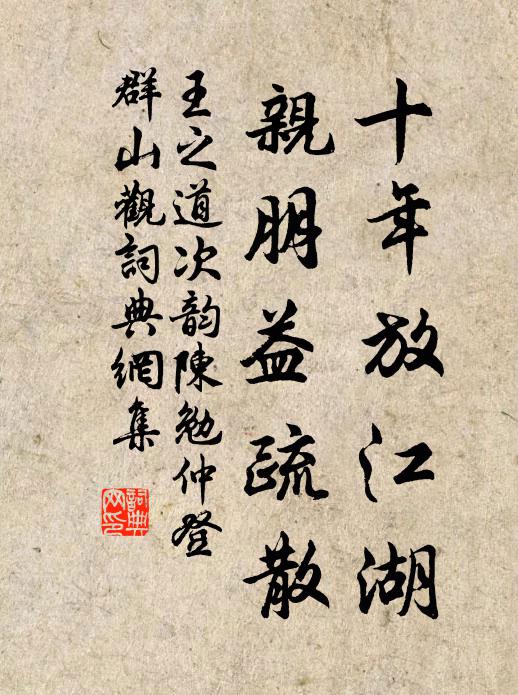 十年放江湖
親朋益疏散
王之道次韵陳勉仲登
群山觀詞典網集
詞典
网印